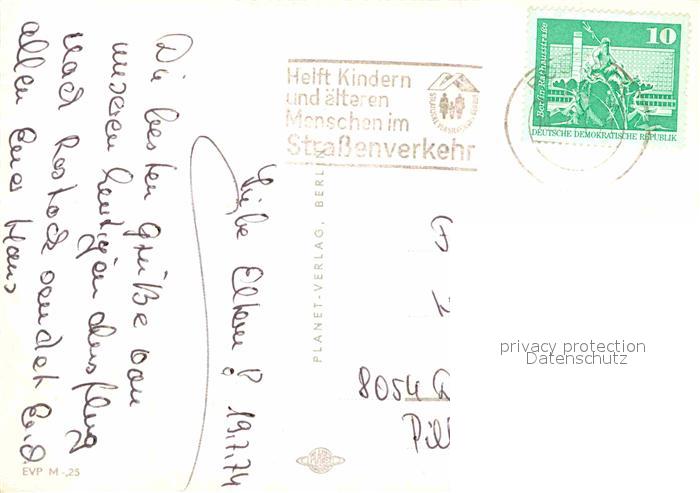 Liebe Eltern! 19.7.74
Die besten Grüße von
unseren heutigen Ausflug
nach Rostock sendet Euch
allen Euer Hans
EVP M -,25
PLANET-VERLAG, BERLIN
Helft Kindern
und älteren
Menschen im
Straßenverkehr
10
Berlin-Rathausstraße
DEUTSCHE DEMOKRATISCHE REPUBLIK
8054
Pill
privacy protection
Datenschutz